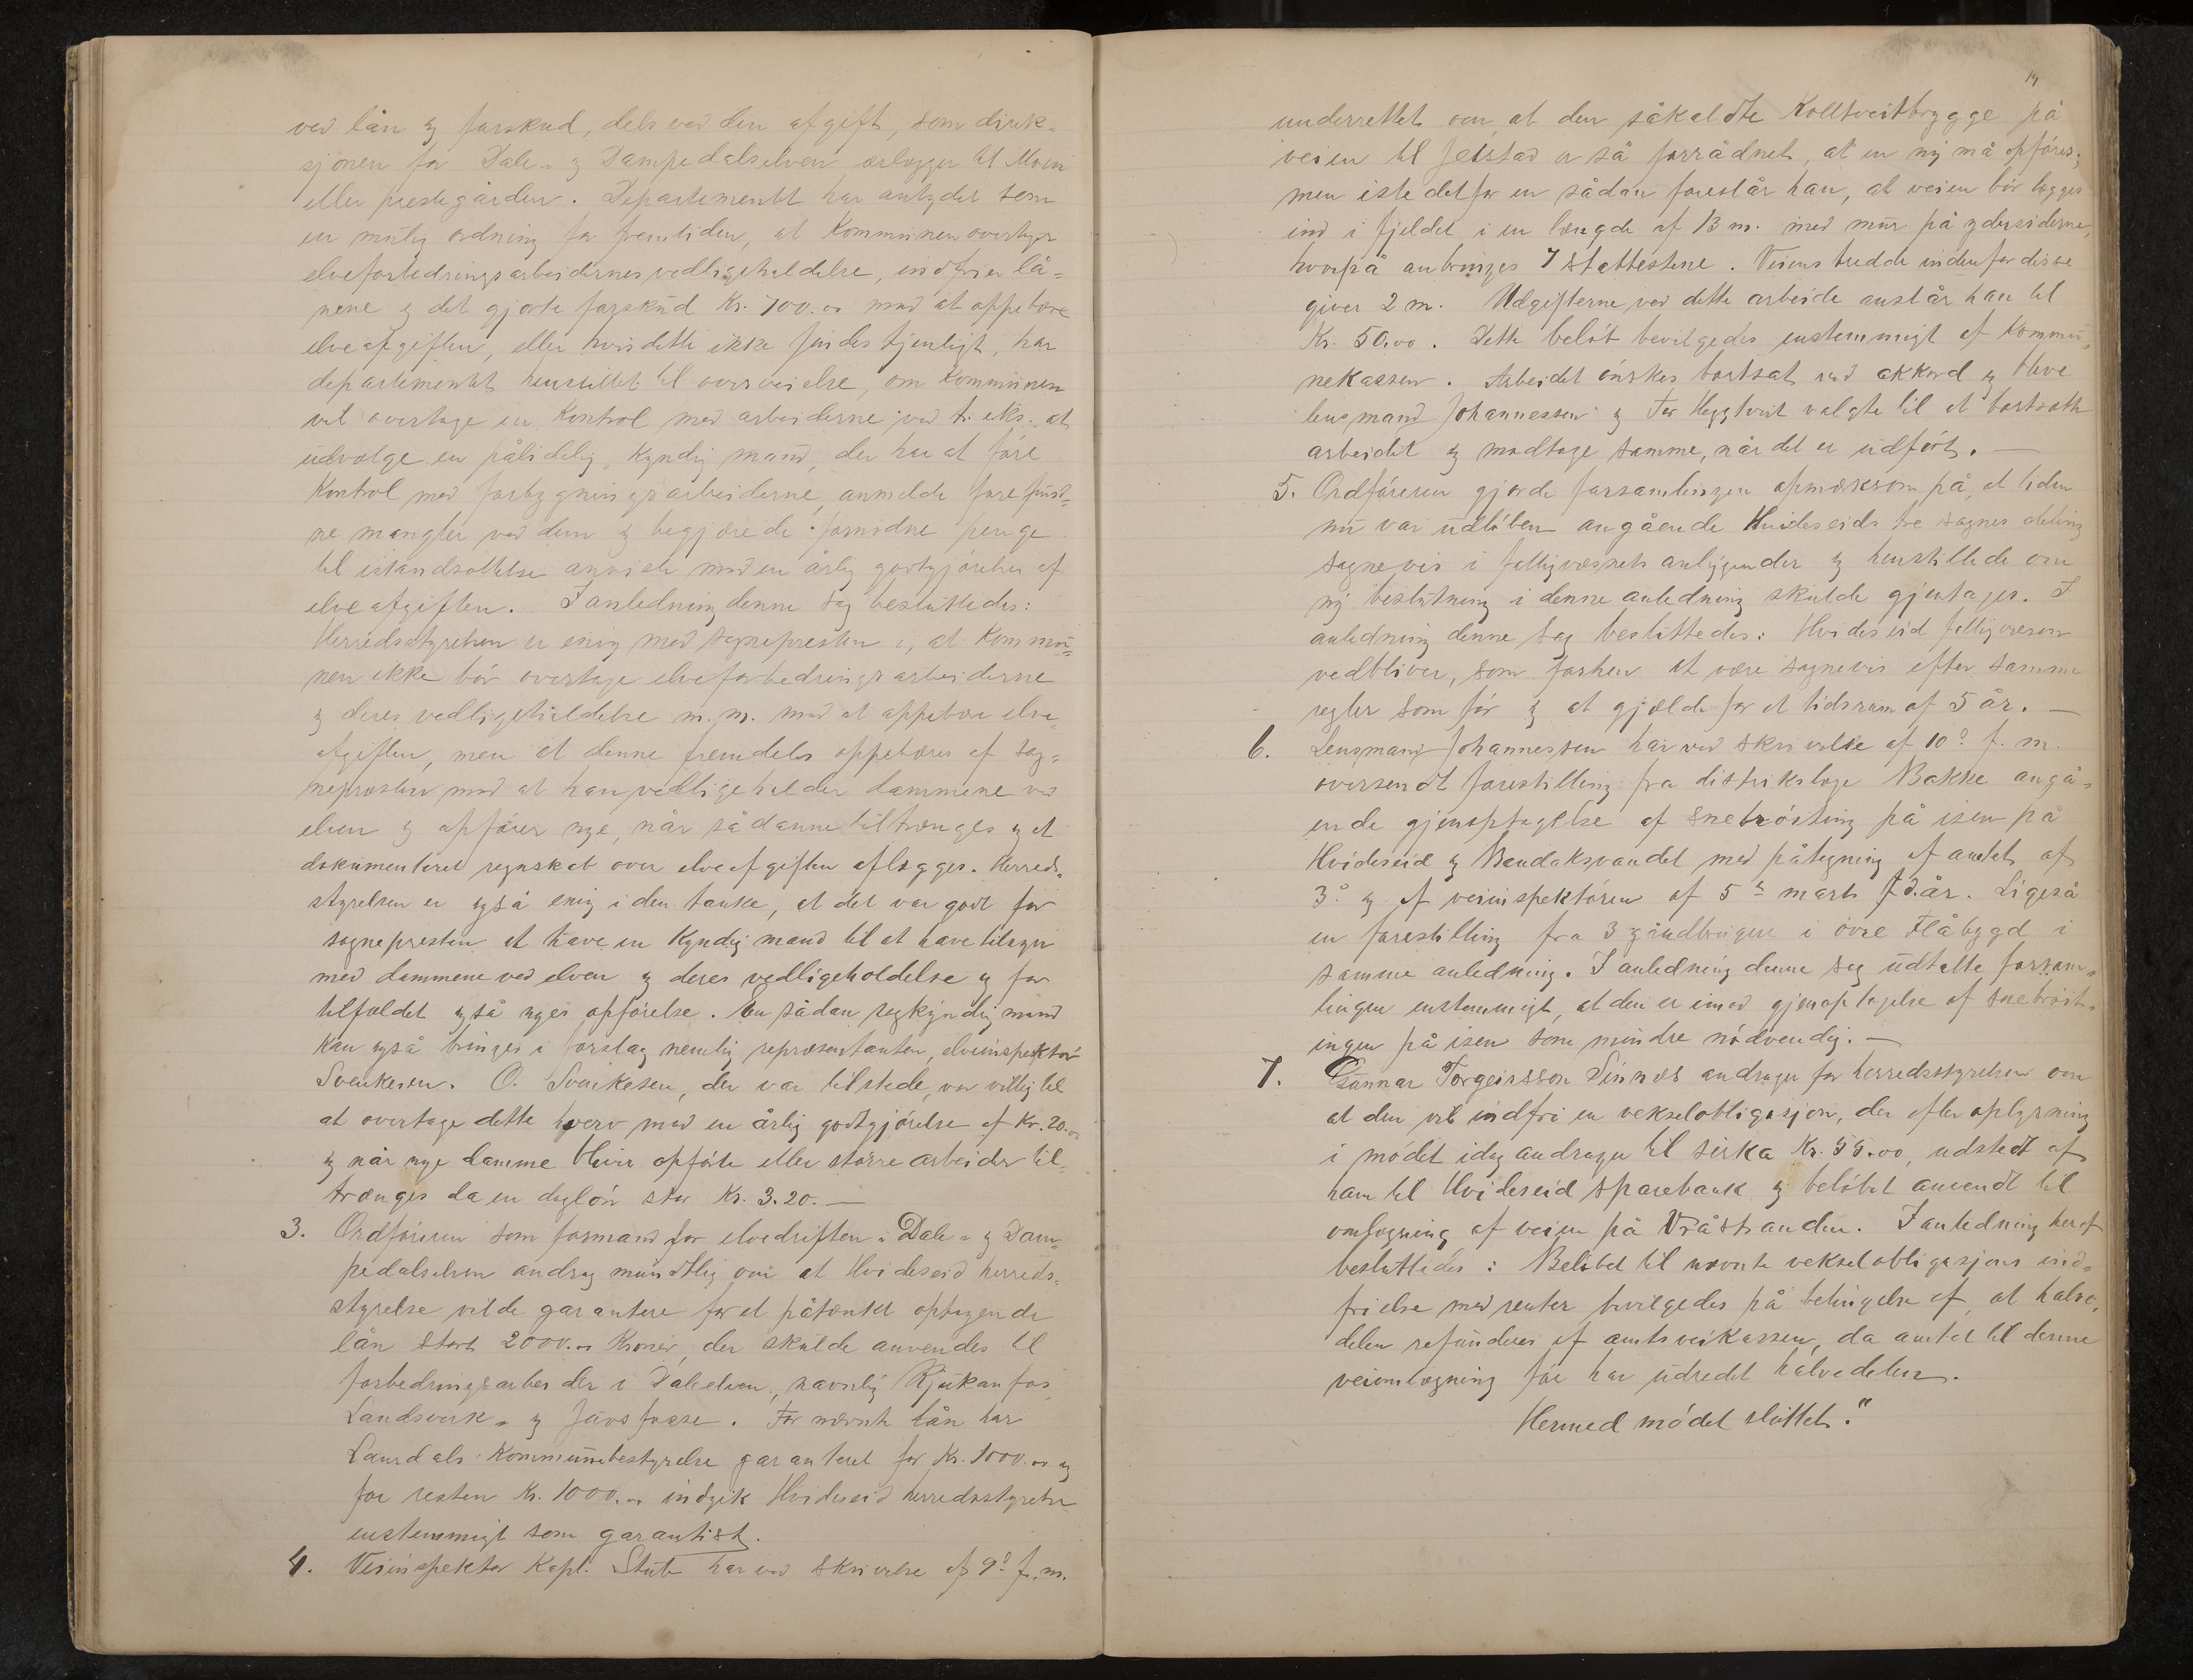 ved lån og forskud, dels ved den afgift, som direk-
sjonen for Dale- og Dampedalselven erlægger til Moen
eller prestegården. Departementet har antydet som
en mulig ordning for fremtiden, at Kommunen overtager
elveforbedringsarbeidernes vedligeholdelse, indfrier lå-
nene og det gjorte forskud Kr. 700.00 mod at oppebære
elveafgiften, eller hvis dette ikke findes tjenligt, har
departementet henstillet til overveielse, om Kommunen
vil overtage en Kontrol med arbeiderne ved t. eks. at
udvælge en pålidelig, kyndig mand, der har at føre
Kontrol med forbygningsarbeiderne, anmelde forefund-
ne mangler ved dem og begjærede fornødne penge
til istandsættelse anviste mod en årlig godtgjørelse af
elveafgiften. I anledning denne sag besluttedes:
Herredsstyrelsen er enig med sognepresten i, at Kommu-
nen ikke bør overtage elveforbedringsarbeiderne
og deres vedligeholdelse m.m. mod at oppebære elve-
afgiften, men at denne fremdeles oppebæres af sog-
nepresten mod at han vedligeholder dammene ved
elven og opfører nye, når sådanne tiltrænges og at
dokumenteret regnskab over elveafgiften aflægges. Herreds-
styrelsen er også enig i den tanke, at det var godt for
sognepresten at have en Kyndig mand til at have tilsyn
med dammene ved elven og deres vedligeholdelse og for
tilfældet også nyes opførelse. En sådan sagkyndig mand
Kan også bringes i forslag nemlig repræsentanten, elveinspektør
Svenkesen. O. Svenkesen, der var tilstede, var villig til
at overtage dette hverv mod en årlig godtgjørelse af Kr. 20.00
og når nye damme bliver opførte eller større arbeider til-
trænges da en dagløn stor Kr. 3.20. —
3. Ordføreren som formand for elvedriften i Dale- og Dam-
pedalselven androg mundtlig om at Hvideseid herreds-
styrelse vilde garantere for et påtænkt optagende
lån stort 2000.00 Kroner, der skulde anvendes til
forbedringsarbeider i Daleelven, navnlig Rjukanfos,
Landsverk- og Juvsfosse. For nævnte lån har
Laurdals Kommunebestyrelse garanteret for Kr. 1000.00 og
for resten Kr. 1000.00 indgik Hvideseid herredsstyrelse
enstemmigt som garantist.
4. Veiinspektør Kapt. Stub har ved skrivelse af 9de f. m.
underrettet om, at den såkaldte Kolltveitbrygge på
veien til Jeistad er så forrådnet, at en ny må opføres;
men istedetfor en sådan foreslår han, at veien bør lægges
ind i fjeldet i en længde af 13 m. med mur på ydersiderne,
hvorpå anbringes 7 stabbestene. Veiens bredde indenfor disse
giver 2 m. Udgifterne ved dette arbeide anslår han til
Kr. 50.00. Dette beløb bevilgedes enstemmigt af Kommu-
nekassen. Arbeidet ønskes bortsat ved akkord og blive
lensmand Johannessen og Tor Heggtveit valgte til at bortsætte
arbeidet og modtage samme, når det er udført. —
5. Ordføreren gjorde forsamlingen opmerksom på, at tiden
nu var udløben angående Hvideseids tre sognes deling
sognevis i fattigvæsnets anliggender og henstillede om
ny beslutning i denne anledning skulde gjentages. I
anledning denne sag besluttedes: Hvideseid fattigvæsen
vedbliver, som forhen at være sognevis efter samme
regler som før og at gjælde for et tidsrum af 5 år. —
6. Lensmand Johannessen har ved skrivelse af 10de f. m.
oversendt forestilling fra distriktslæge Bakke angå-
ende gjenoptagelse af snebrøiting på isen på
Hvideseid og Bandaksvandet med påtegning af amtet af
3de og af veiinspektøren af 5te marts d. år. Ligeså
en forestilling fra 3 gårdbrugere i øvre Flåbygd i
samme anledning. I anledning denne sag udtalte forsam-
lingen enstemmigt, at den er imod gjenoptagelse af snebrøit-
ingen på isen som mindre nødvendig. —
7. Gunnar Torgeirsson Sinnes andrager for herredsstyrelsen om
at den vil indfri en vekselobligasjon, der efter oplysning
i mødet idag andrager til sirka Kr. 55.00, udstedt af
ham til Hvideseid sparebank og beløbet anvendt til
omlægning af veien på Vråstranden. I anledning heraf
besluttedes: Beløbet til nævnte vekselobligasjons ind-
frielse med renter bevilgedes på betingelse af, at halv-
delen refunderes af amtsveikassen, da amtet til denne
veiomlægning før har udredet halvdelen.
Hermed mødet sluttet."